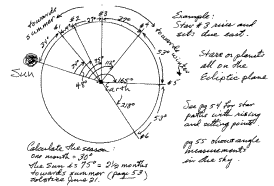 towards
summer
21°
#1
#2
#3
#4
22°
towards
winter
53°
Sun
48°
112°
165°
Earth
#5
218°
#6
Example:
Star #3 rise and
sets due east.
Stars or planets
all on the
Ecliptic plane
See pg 54 for star
paths with rising
and setting points
pg 55 shows angle
measurements
in the sky.
Calculate the season:
one month = 30°
the Sun is 75° = 2½ months
towards summer (page 53)
solstice June 21.